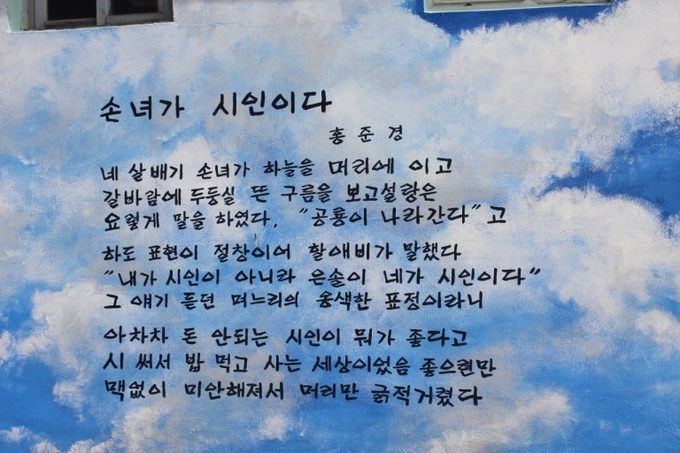 손녀가 시인이다
홍준경
네 살배기 손녀가 하늘을 머리에 이고
갈바람에 두둥실 뜬 구름을 보고설랑은
요렇게 말을 하였다. "공룡이 나라간다"고
하도 표현이 절창이어 할애비가 말했다
"내가 시인이 아니라 은솔이 네가 시인이다"
그 얘기 듣던 며느리의 옹색한 표정이라니
아차차 돈 안되는 시인이 뭐가 좋다고
시 써서 밥 먹고 사는 세상이었음 좋으련만
맥없이 미안해져서 머리만 긁적거렸다